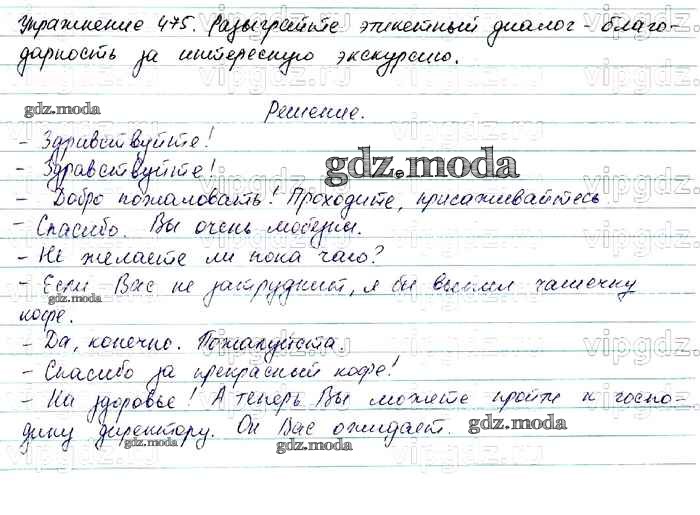 Упражнение 475. Разыграйте этикетный диалог - благо-
дарность за интересную экскурсию.
gdz.moda
Решение.
- Здравствуйте!
- Здравствуйте!
gdz.moda
- Добро пожаловать! Проходите, присаживайтесь
- Спасибо. Вы очень любезны.
- Не желаете ли пока чаю?
- Если Вас не затруднит, я бы выпил чашечку
gdz.moda
кофе.
- Да, конечно. Пожалуйста.
- Спасибо за прекрасный кофе!
- На здоровье! А теперь Вы можете пройти к госпо-
дину директору. Он Вас ожидает.
gdz.moda
gdz.moda
gdz.moda
vipgdz.ru